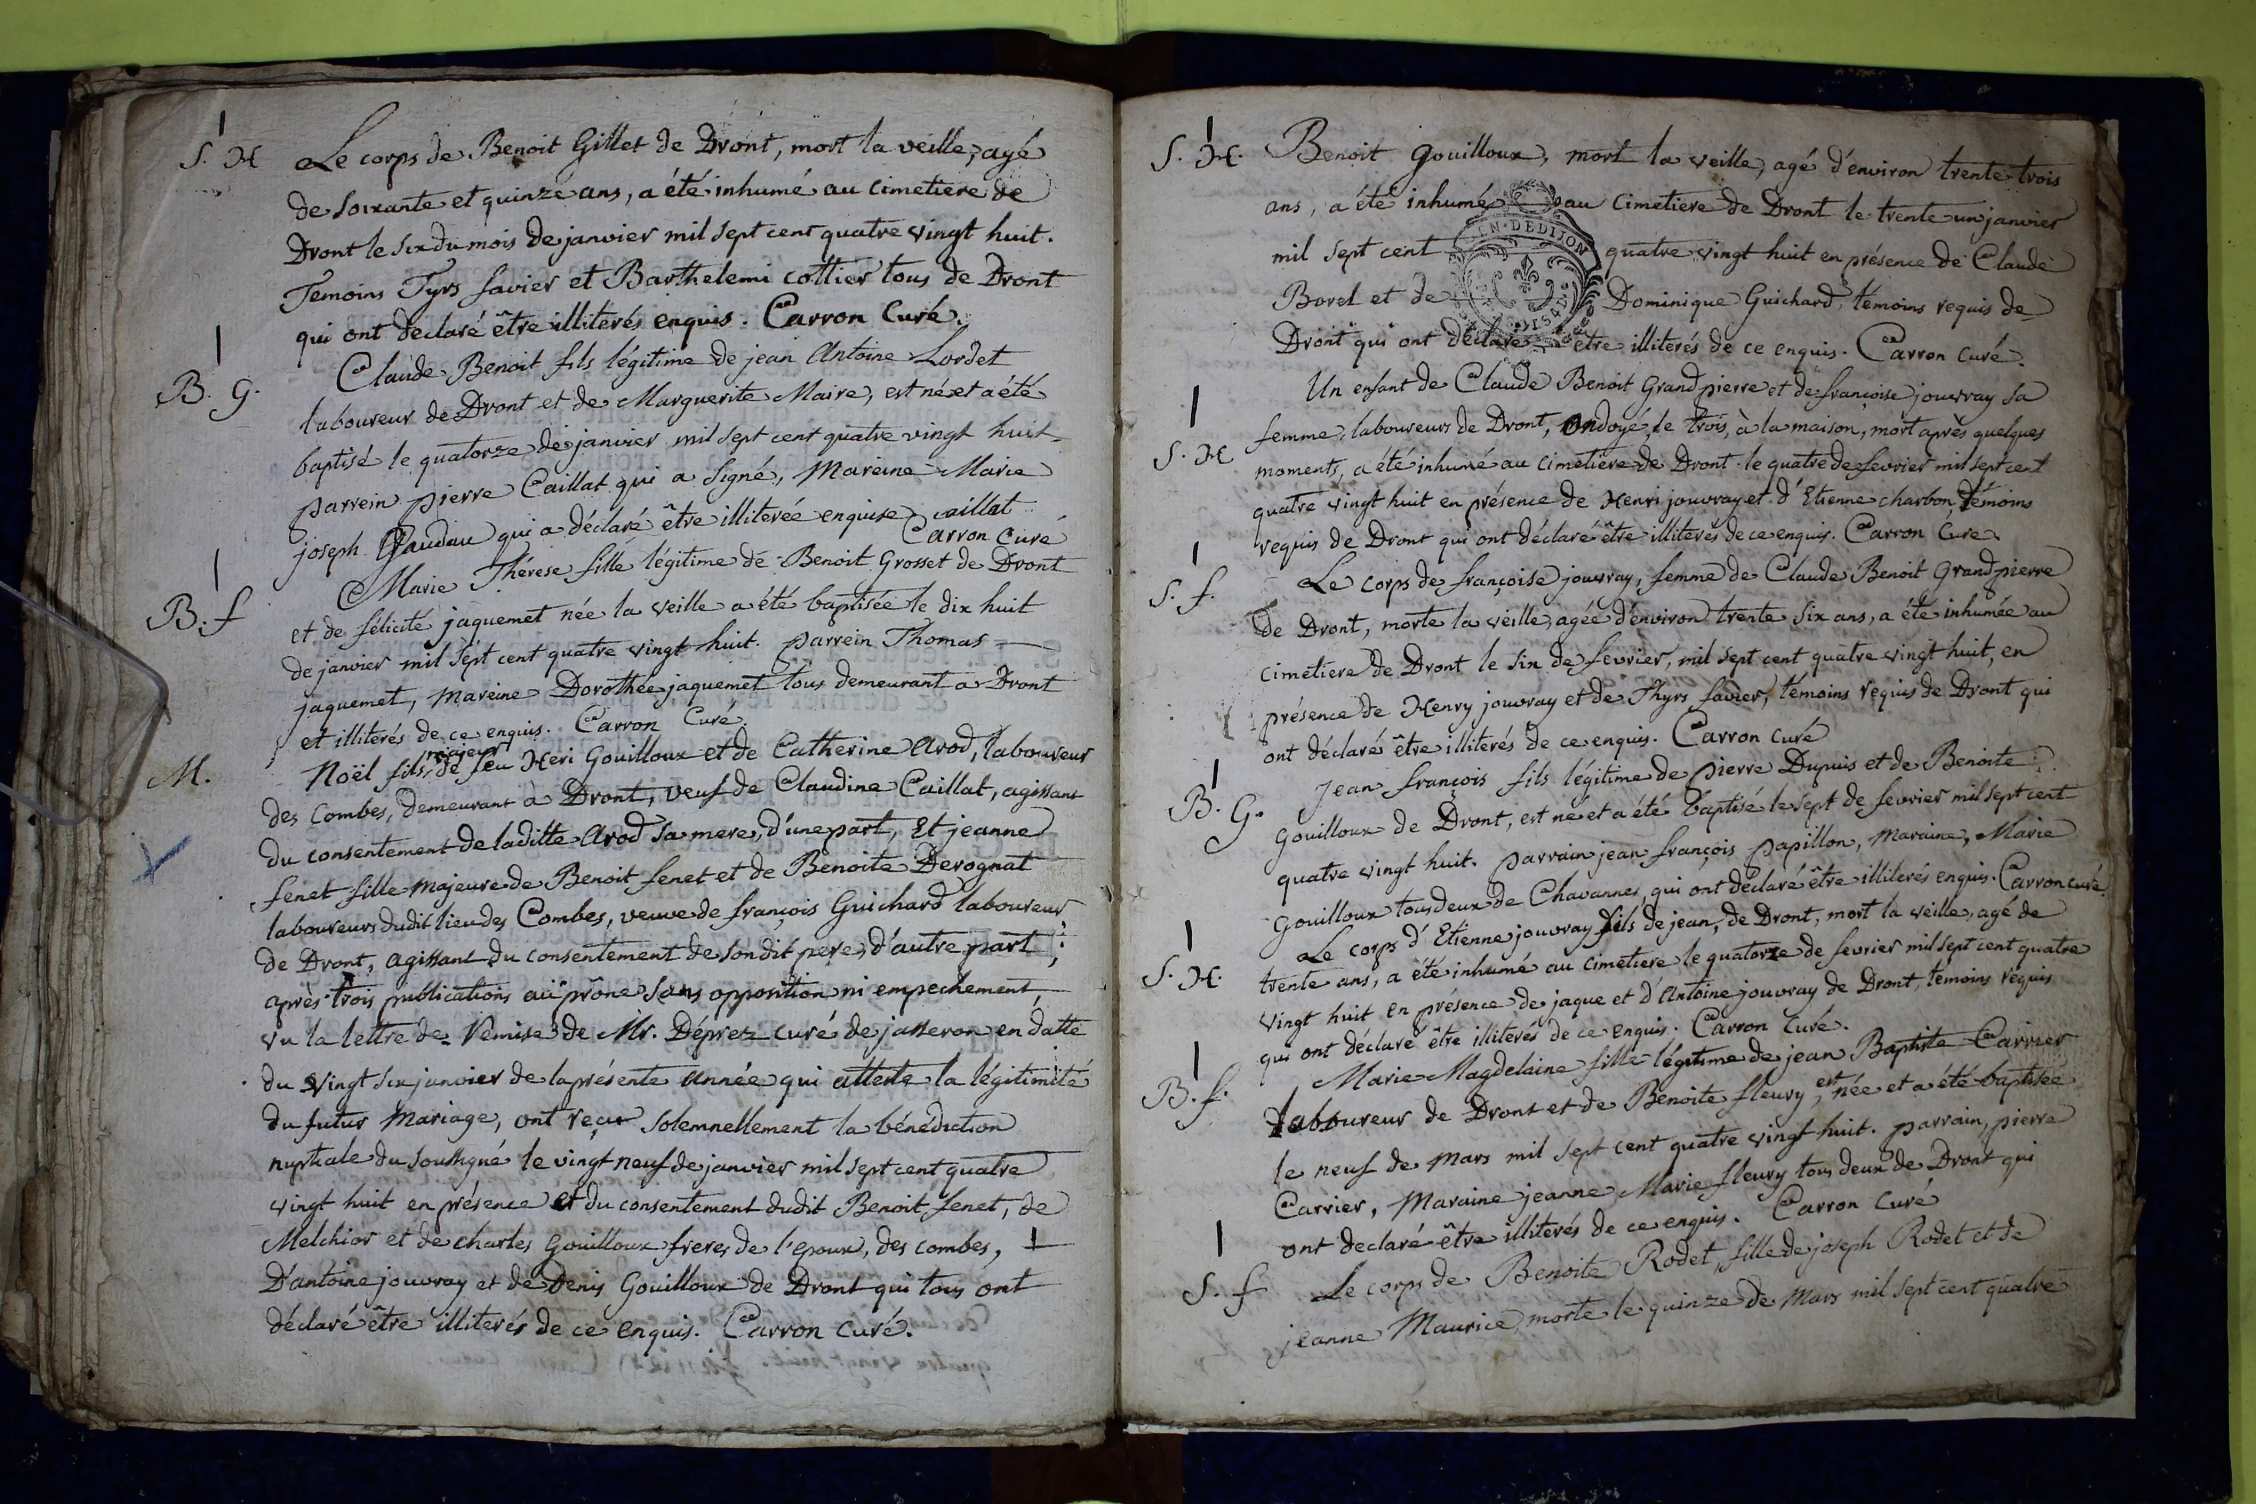 S. H
Le corps de Benoit Gillet de Dront, mort la veille, agé
de soixante et quinze ans, a été inhumé au cimetiere de
Dront le six du mois de janvier mil sept cent quatre vingt huit.
Temoins Tyrs savier et Barthelemi cottier tous de Dront
qui ont declaré être illiterés enquis. Carron Curé.
B. G.
Claude Benoit fils légitime de jean Antoine Lordet
laboureur de Dront et de Marguerite Maire, est né et a été
baptisé le quatorze de janvier mil sept cent quatre vingt huit
parrein pierre Caillat qui a signé, Mareine Marie
joseph qui a déclaré être illiterée enquise caillat
Carron Curé
B. f
Marie Thérese fille légitime de Benoit Grosset de Dront
et de félicité jaquemet née la veille a été baptisée le dix huit
de janvier mil sept cent quatre vingt huit. parrein Thomas
jaquemet, mareine Dorothée jaquemet tous demeurant a Dront
et illiterés de ce enquis. Carron Curé.
M.
majeur
Noël fils de feu Heri Gouilloux et de Catherine Arod, laboureur
des Combes, demeurant à Dront, veuf de Claudine Caillat, agissant
du consentement de laditte Arod sa mere, d'une part, Et jeanne
fenet fille majeure de Benoit fenet et de Benoite Derognat
laboureurs dudit lieu des Combes, veuve de françois Guichard laboureur
de Dront, agissant du consentement de son dit pere, d'autre part;
après trois publications au prône sans opposition ni empechement,
vu la lettre de Remise de Mr. Déprez curé de jasseron en datte
du vingt six janvier de la présente année qui atteste la légitimité
du futur mariage, ont reçu solemnellement la bénédiction
nuptiale du soussigné le vingt neuf de janvier mil sept cent quatre
vingt huit en présence et du consentement dudit Benoit fenet, de
Melchior et de charles Gouilloux freres de l'epoux, des combes,
D'antoine jouvray et de Denis Gouilloux de Dront qui tous ont
déclaré être illiterés de ce enquis. Carron curé.
S. H.
Benoit Gouilloux, mort la veille, agé d'environ trente trois
ans, a été inhumé au Cimetiere de Dront le trente un janvier
mil sept cent quatre vingt huit en présence de Claude
GEN. DE DIJON
Borel et de Dominique Guichard, témoins requis de
Dront qui ont déclaré être illiterés de ce enquis. Carron curé.
Un enfant de Claude Benoit Grandpierre et de françoise jouvray sa
S. H
femme, laboureurs de Dront, ondoyé, le trois, à la maison, mort après quelques
moments, a été inhumé au cimetiere de Dront le quatre de fevrier mil sept cent
quatre vingt huit en présence de Henri jouvray et d'Etienne charbon, témoins
requis de Dront qui ont déclaré être illiterés de ce enquis. Carron Curé.
S. f.
Le corps de françoise jouvray, femme de Claude Benoit Grandpierre
de Dront, morte la veille, agée d'environ trente six ans, a été inhumée au
cimetiere de Dront le six de fevrier, mil sept cent quatre vingt huit, en
présence de Henry jouvray et de Thyrs savier, témoins requis de Dront qui
ont déclaré être illiterés de ce enquis. Carron curé
B. G.
Jean françois fils légitime de pierre Dupuis et de Benoite
Gouilloux de Dront, est né et a été baptisé le sept de fevrier mil sept cent
quatre vingt huit. parrain jean françois papillon, maraine, Marie
Gouilloux tous deux de Chavannes, qui ont déclaré être illiterés enquis. Carron curé
S. H.
Le corps d'Etienne jouvray fils de jean, de Dront, mort la veille, agé de
trente ans, a été inhumé au cimetiere le quatorze de fevrier mil sept cent quatre
vingt huit en présence de jaque et d'Antoine jouvray de Dront, temoins requis
qui ont déclaré être illiterés de ce enquis. Carron Curé.
B. f.
Marie Magdelaine fille légitime de jean Baptiste Carrier
est
laboureur de Dront et de Benoite fleury, née et a été baptisée
le neuf de Mars mil sept cent quatre vingt huit. parrain, pierre
Carrier, Maraine jeanne Marie fleury tous deux de Dront qui
ont declaré être illiterés de ce enquis. Carron Curé
S. f
Le corps de Benoite Rodet, fille de joseph Rodet et de
jeanne Maurice, morte le quinze de Mars mil sept cent quatre